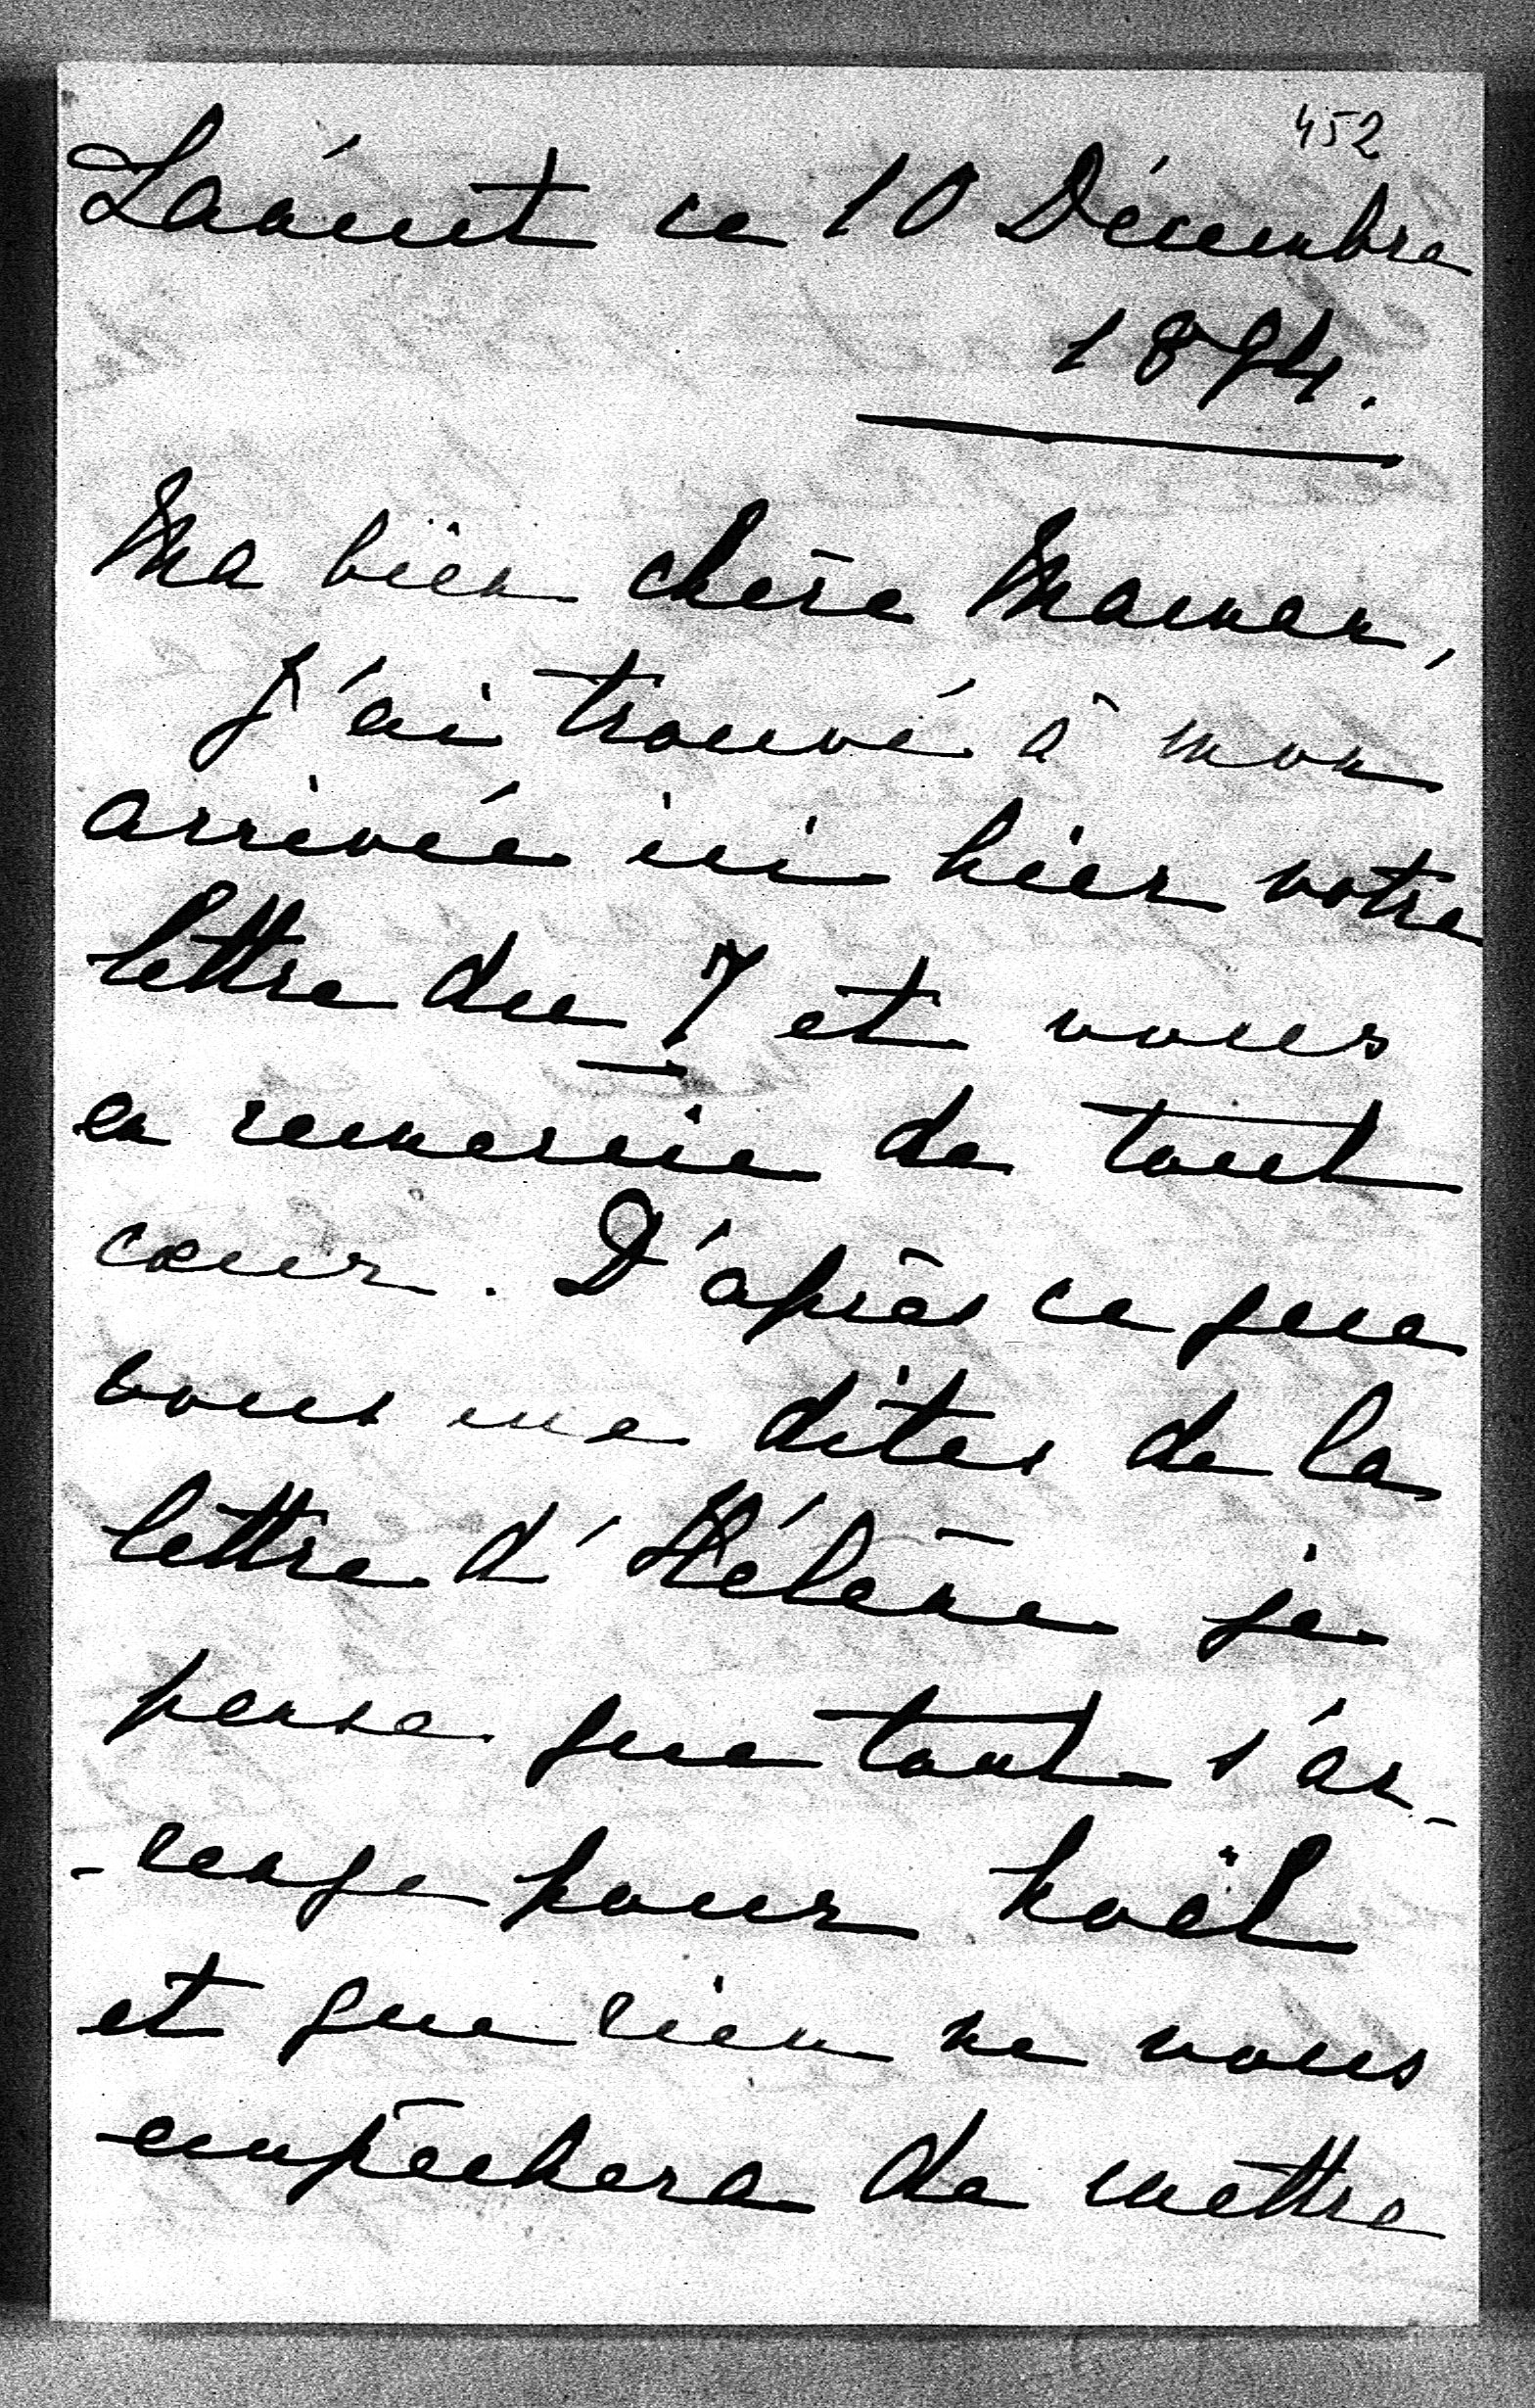 452
Laänet ce 10 Décembre
1894.
Ma bien chère Maman,
J'ai trouvé à mon
arrivée ici hier votre
lettre du 7 et vous
en remercie de tout
cœur. D'après ce que
vous me dites de la
lettre d'Hélène je
pense que tout s'ar-
-range pour Noël
et que rien ne vous
empêchera de mettre